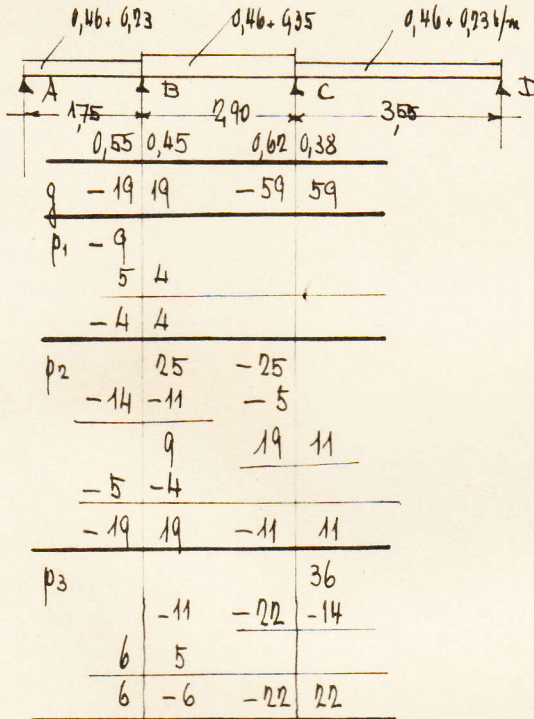 0,46+0,23 0,46+0,35 0,46+0,23 t/m
A B C D
1,75 2,90 3,55
0,55 0,45 0,62 0,38
g -19 19 -59 59
p1 -9
5 4
-4 4
p2 25 -25
-14 -11 -5
9 19 11
-5 -4
-19 19 -11 11
p3 36
-11 -22 -14
6 5
6 -6 -22 22